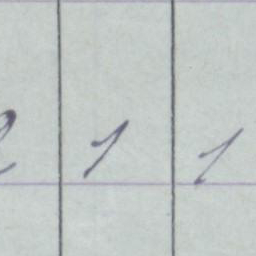 2 1 1